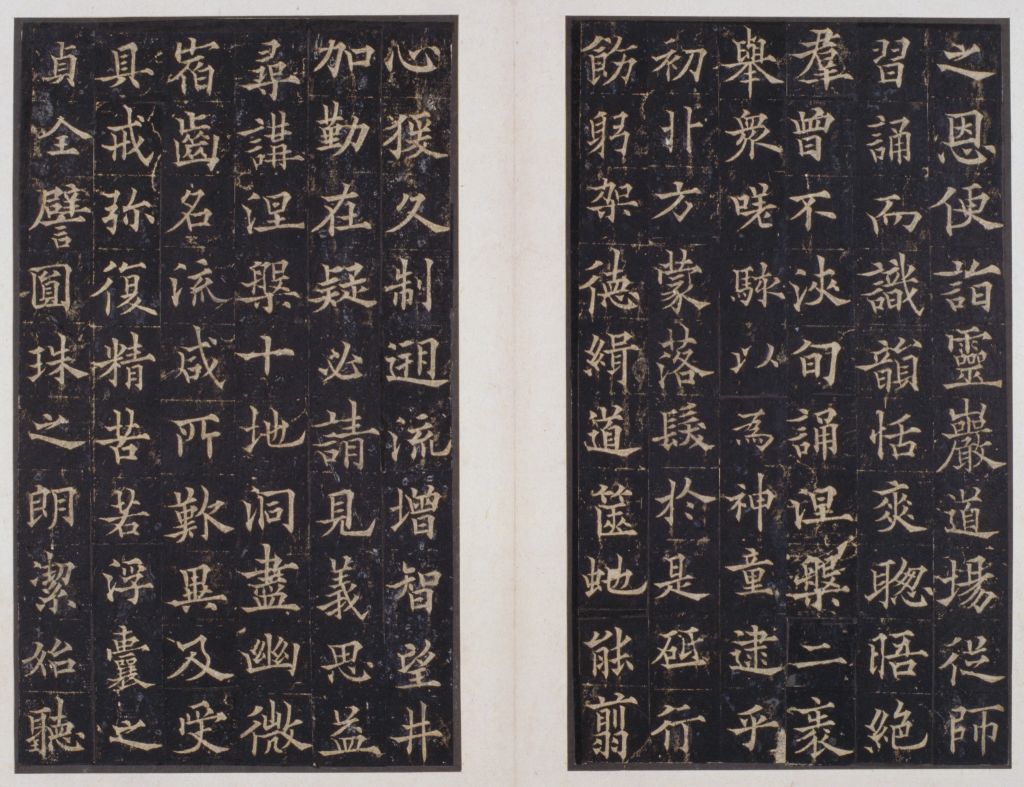 之恩便詣靈巖道場從師
習誦而識韻恬爽聰晤絕
羣曾不浹旬誦涅槃二袠
舉衆嗟駭以為神童逮乎
初卝方蒙落髮於是砥行
飭躬架德緝道篋虵能翦
心猨久制遡流增智望井
加勤在疑必請見義思益
尋講涅槃十地洞盡幽微
宿齒名流咸所歎異及受
具戒弥復精苦若浮囊之
貞全譬圓珠之朗潔始聽